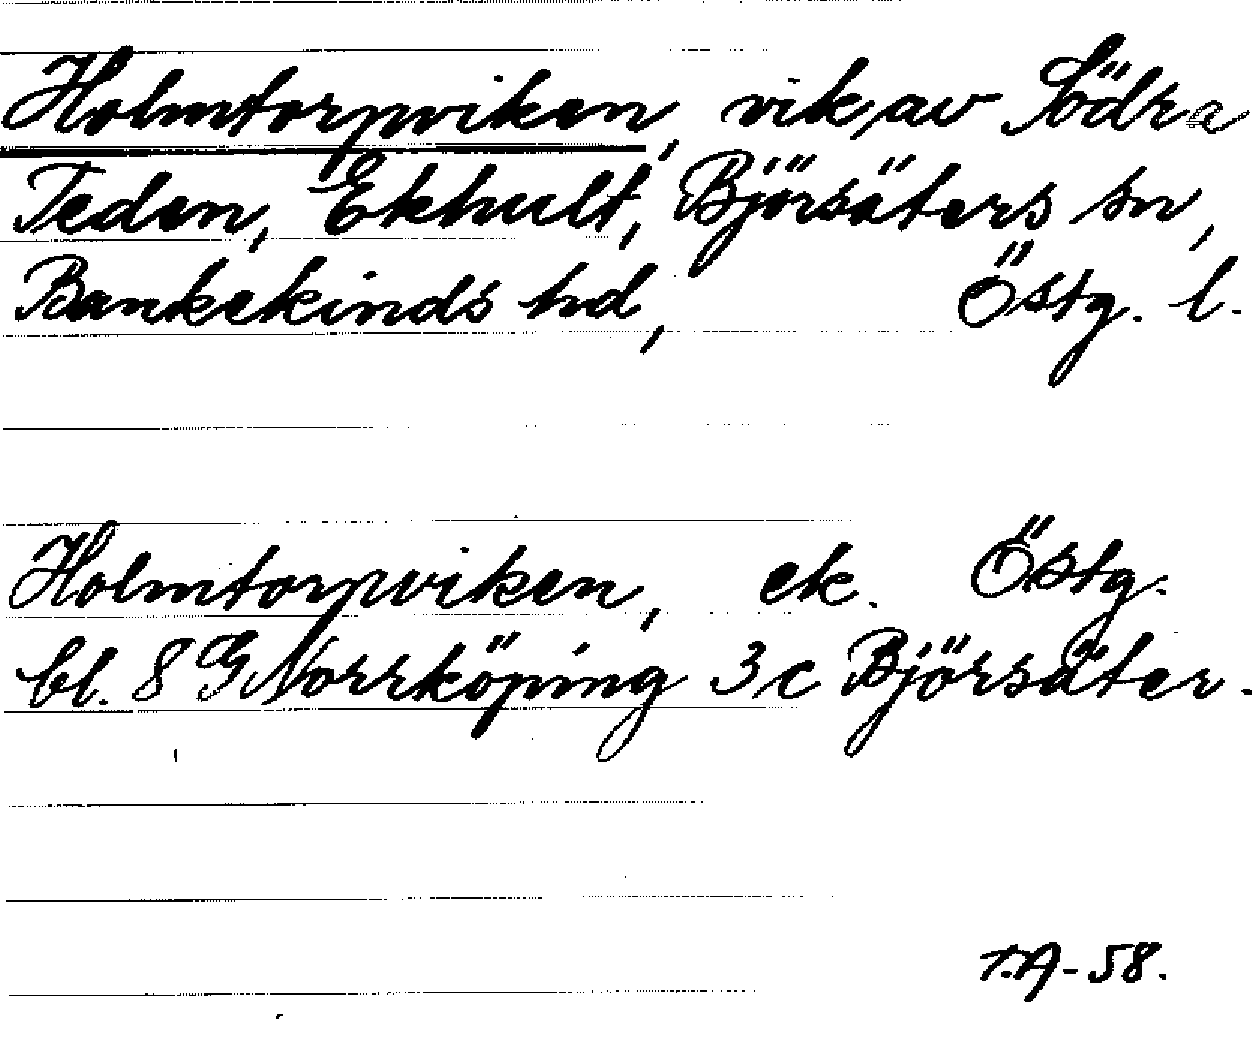 Holmtorpviken, vik av Södra
Teden, Ekhult, Björsäters sn,
Bankekinds hd, Östg. l.
Holmtorpviken, ek. Östg.
bl. 8 G Norrköping 3 c Björsäter.
T.A-58.